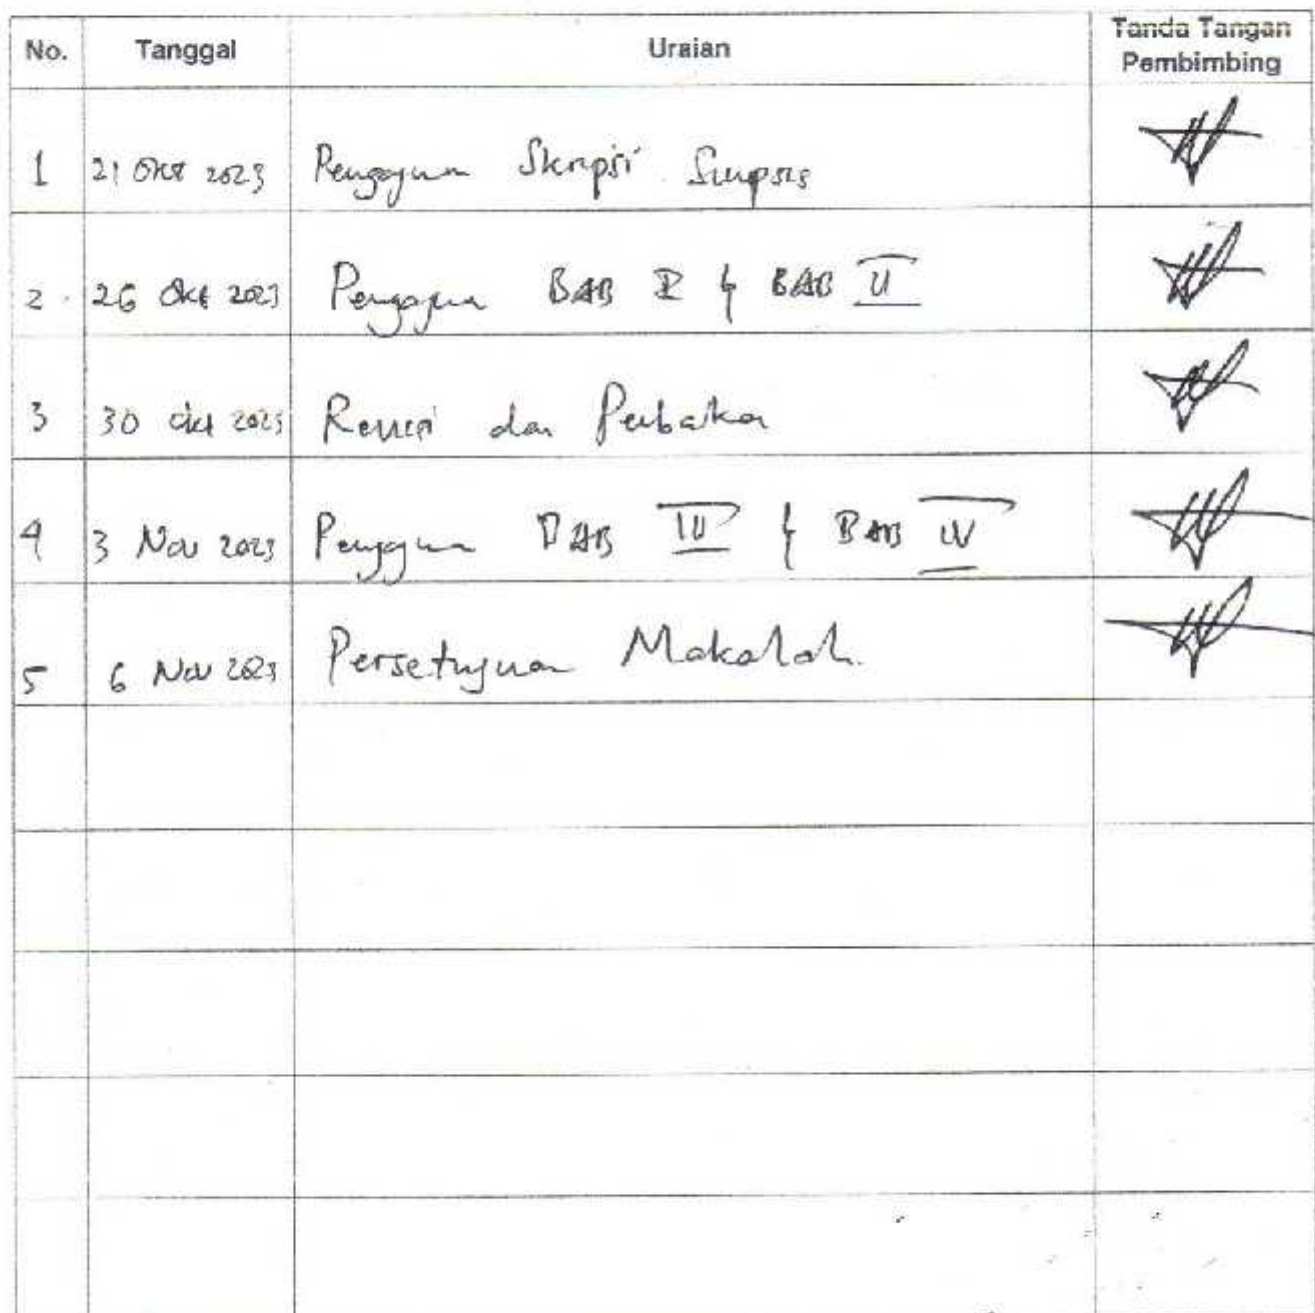 No. Tanggal Uraian Tanda Tangan
Pembimbing
1 21 Okt 2023 Pengajuan Skripsi Sinopsis
2 26 Okt 2023 Pengajuan BAB I & BAB II
3 30 Okt 2023 Revisi dan Perbaikan
4 3 Nov 2023 Pengajuan BAB III & BAB IV
5 6 Nov 2023 Persetujuan Makalah